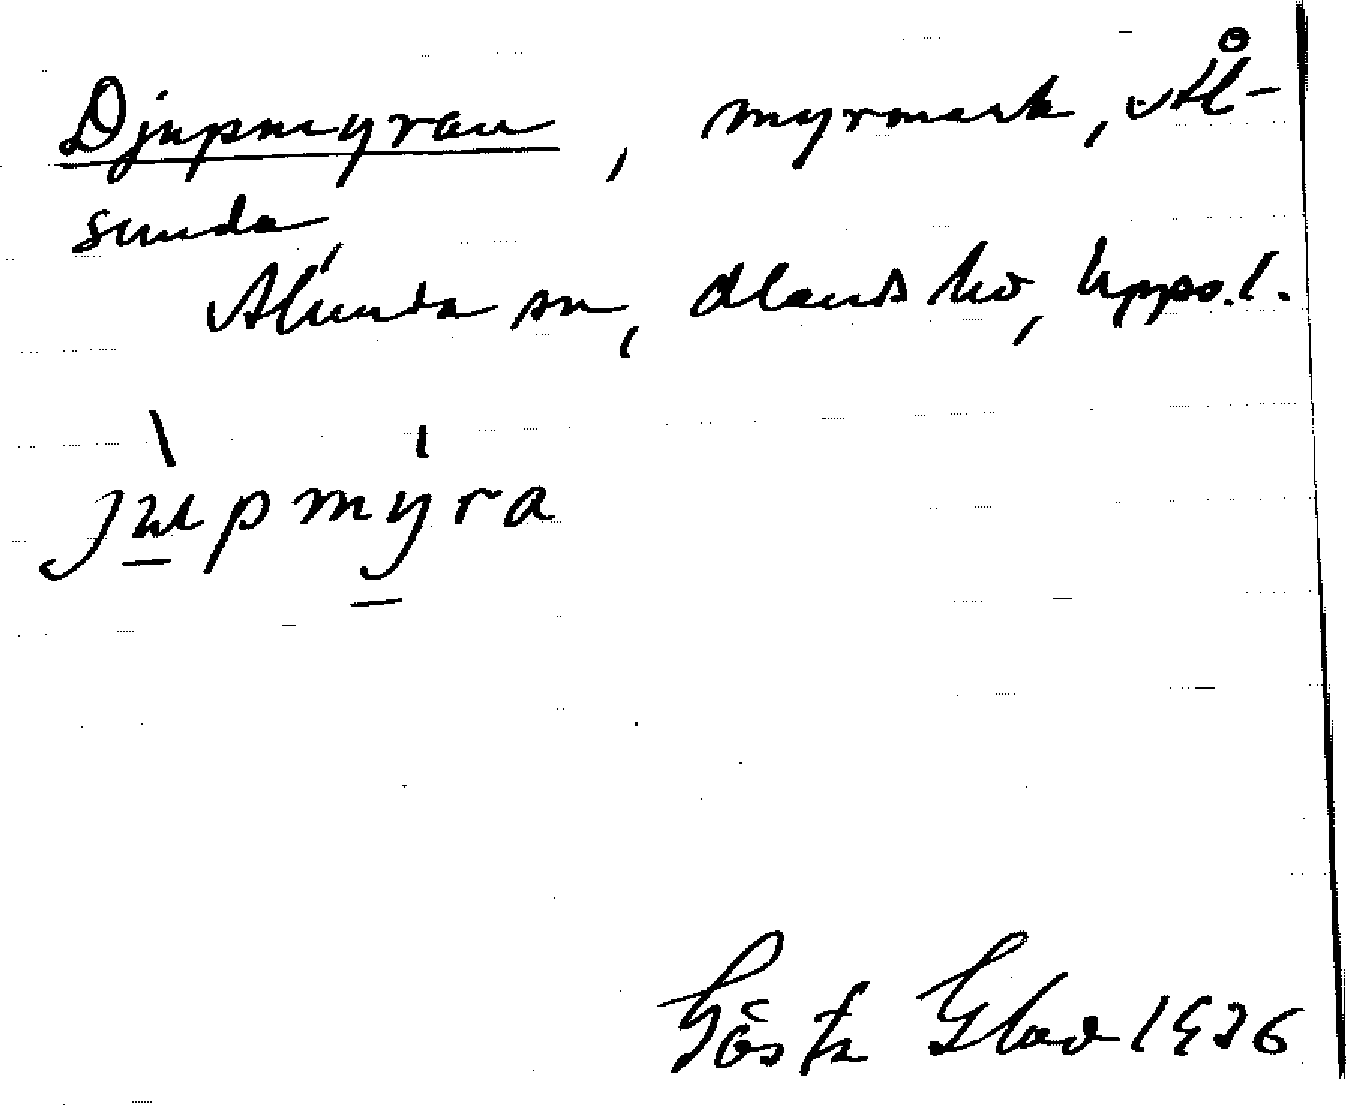 Djupmyran, myrmark, Ål-
sunda,
Alunda sn, Olands hd, Upps.l.
jùpmýra
Gösta Glad 1936